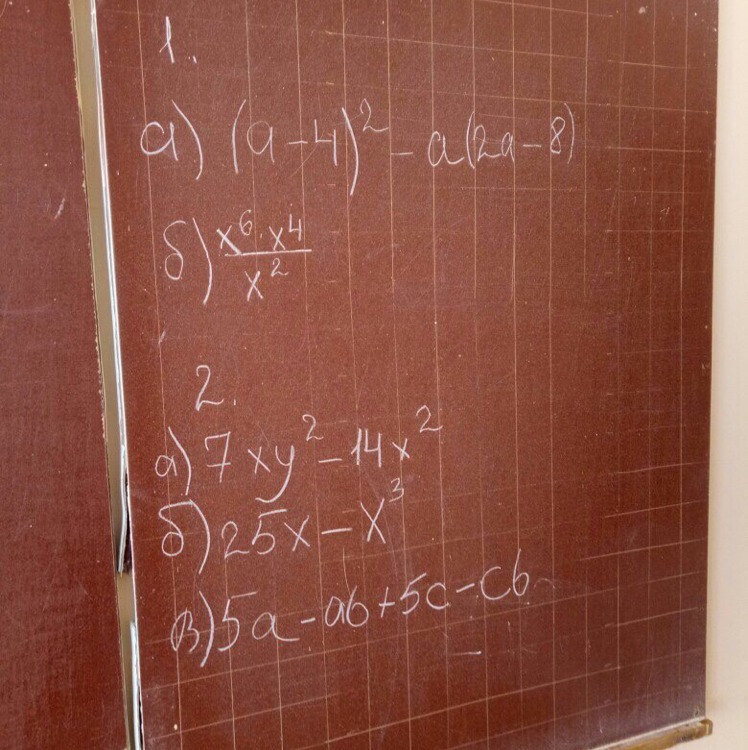 1.
а) (a-4)² - a(2a-8)
б) x⁶·x⁴/x²
2.
а) 7xy²-14x²
б) 25x-x³
в) 5a-ab+5c-cb